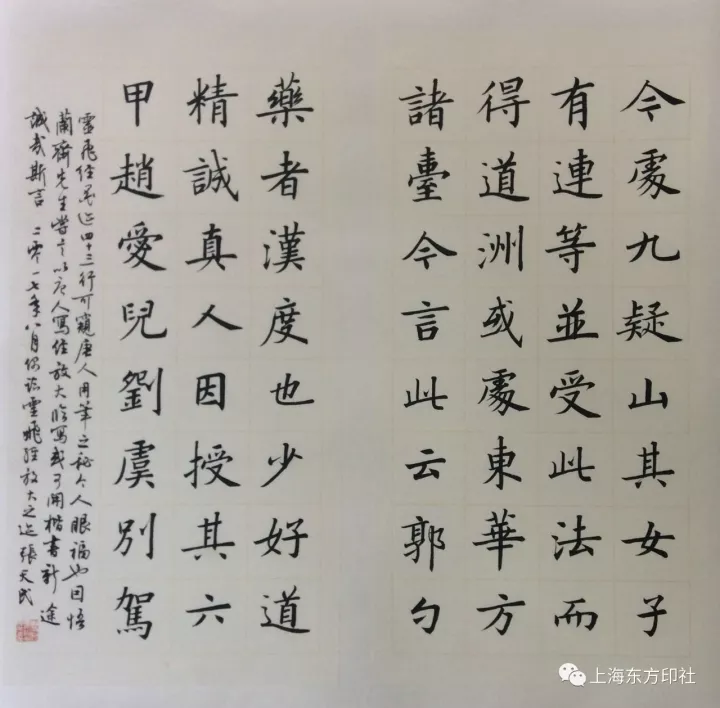 今處九疑山其女子
有連等並受此法而
得道洲或處東華方
諸臺今言此云郭勺
藥者漢度也少好道
精誠真人因授其六
甲趙愛兒劉虞別駕
靈飛經墨迹四十三行可窺唐人用筆之秘今人眼福也因悟
蘭齋先生嘗言以唐人寫經放大臨寫或可開楷書新途
誠哉斯言 二零一七年八月偶臨靈飛經放大之迹張天民
上海东方印社